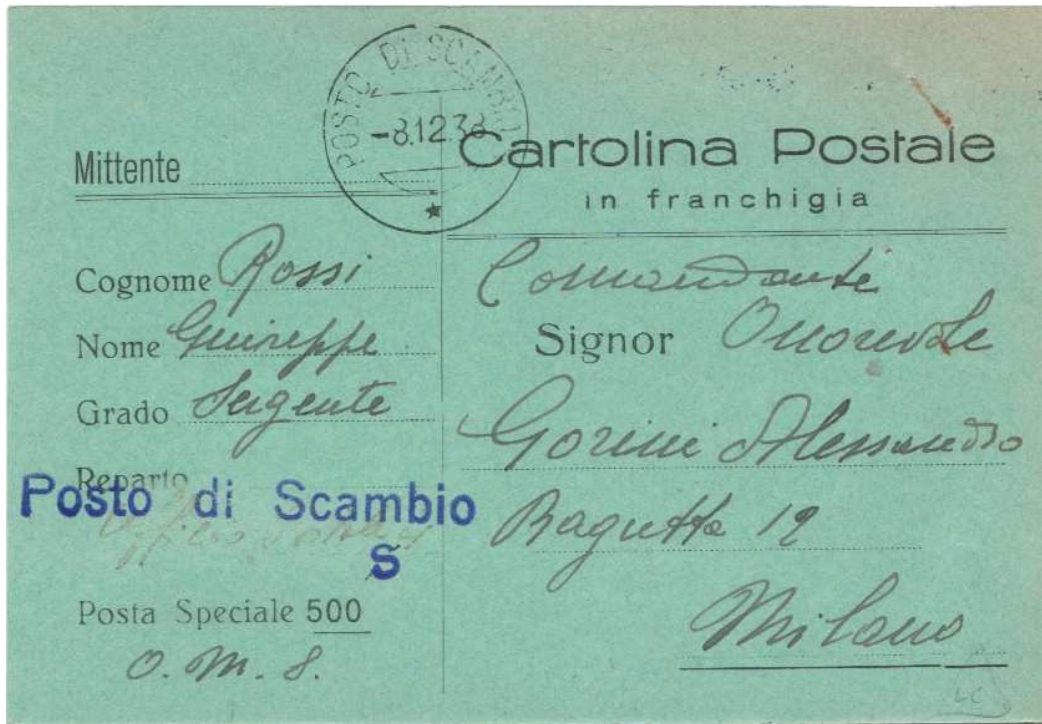 POSTO DI SCAMBIO
-8.12.38
Mittente
Cartolina Postale
in franchigia
Cognome Rossi
Nome Giuseppe
Grado Sergente
Reparto
Posto di Scambio
S
Posta Speciale 500
O. M. S.
Comandante
Signor Onorevole
Gorini Alessandro
Bagutta 12
Milano
LC